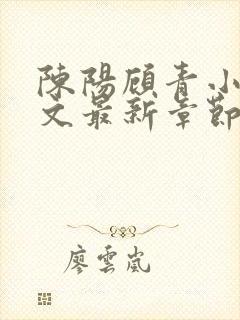 陳陽顧青小
文最新章節
廖雲嵐